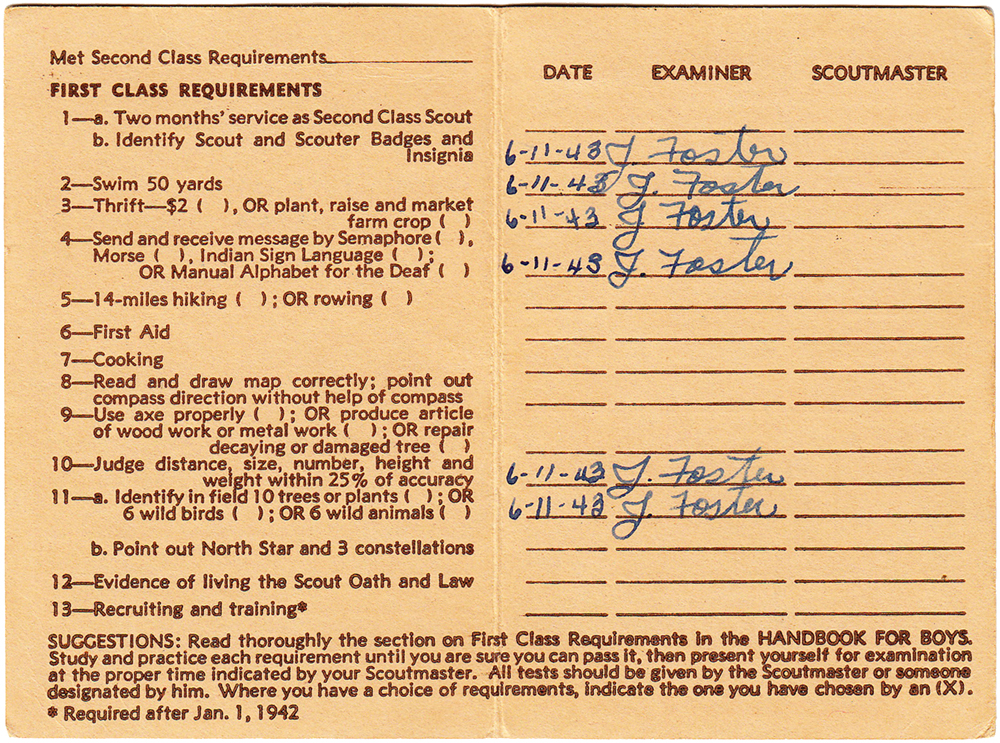 Met Second Class Requirements
DATE EXAMINER SCOUTMASTER
FIRST CLASS REQUIREMENTS
1—a. Two months' service as Second Class Scout
b. Identify Scout and Scouter Badges and
Insignia
6-11-43 J. Foster
2—Swim 50 yards
6-11-43 J. Foster
3—Thrift—$2 ( ), OR plant, raise and market
farm crop ( )
6-11-43 J. Foster
4—Send and receive message by Semaphore ( ),
Morse ( ), Indian Sign Language ( );
OR Manual Alphabet for the Deaf ( )
6-11-43 J. Foster
5—14-miles hiking ( ); OR rowing ( )
6—First Aid
7—Cooking
8—Read and draw map correctly; point out
compass direction without help of compass
9—Use axe properly ( ); OR produce article
of wood work or metal work ( ); OR repair
decaying or damaged tree ( )
10—Judge distance, size, number, height and
weight within 25% of accuracy
6-11-43 J. Foster
11—a. Identify in field 10 trees or plants ( ); OR
6 wild birds ( ); OR 6 wild animals ( )
6-11-43 J. Foster
b. Point out North Star and 3 constellations
12—Evidence of living the Scout Oath and Law
13—Recruiting and training*
SUGGESTIONS: Read thoroughly the section on First Class Requirements in the HANDBOOK FOR BOYS.
Study and practice each requirement until you are sure you can pass it, then present yourself for examination
at the proper time indicated by your Scoutmaster. All tests should be given by the Scoutmaster or someone
designated by him. Where you have a choice of requirements, indicate the one you have chosen by an (X).
* Required after Jan. 1, 1942